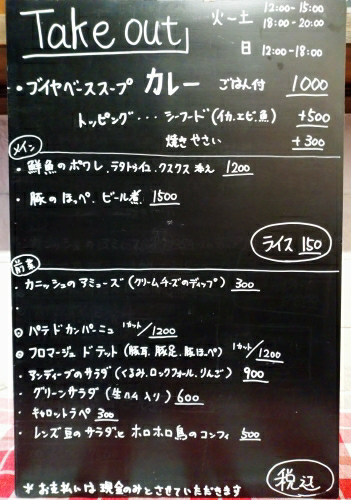 Take out
火〜土 12:00-15:00
18:00-20:00
日 12:00-18:00
・ブイヤベーススープ カレー ごはん付 1000
トッピング・・・シーフード(イカ、エビ、魚) +500
焼きやさい +300
メイン
・鮮魚のポワレ、ラタトゥイユ、クスクス添え 1200
・豚のほっぺ、ビール煮 1500
ライス 150
前菜
・カニッシュのアミューズ(クリームチーズのディップ) 300
・パテドカンパーニュ 1カット/1200
・フロマージュ ドテット(豚耳、豚足、豚ほっぺ) 1カット/1200
・アンディーブのサラダ(くるみ、ロックフォール、りんご) 900
・グリーンサラダ(生ハム入り) 600
・キャロットラペ 300
・レンズ豆のサラダとホロホロ鳥のコンフィ 500
税込
*お支払いは現金のみとさせていただきます